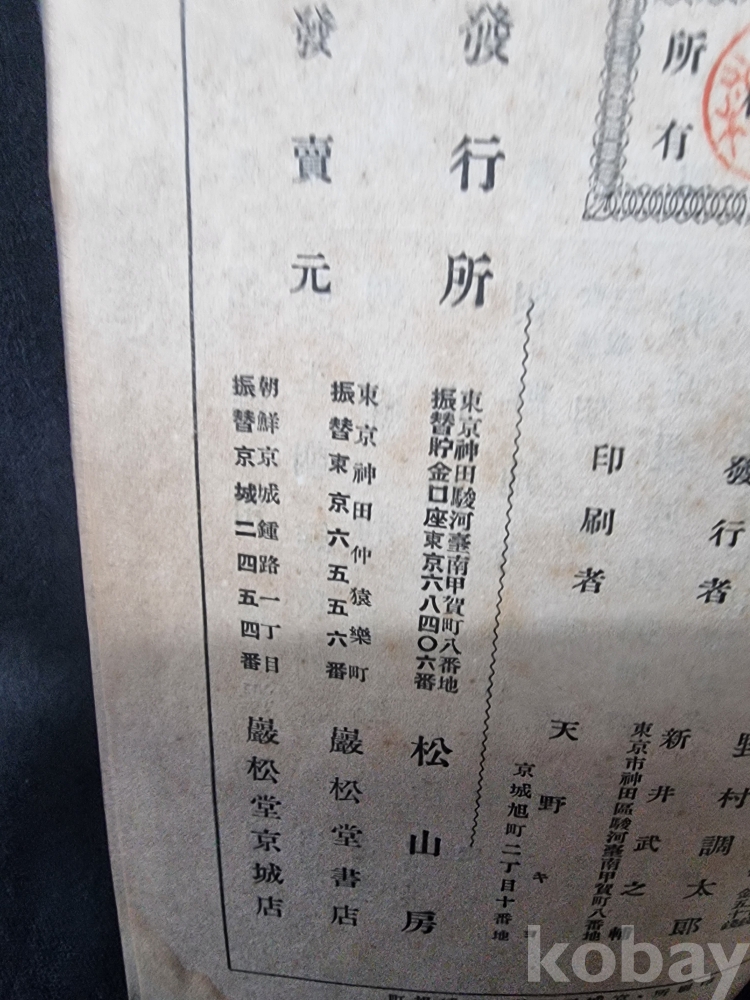 所有
野村調太郎
發行者
東京市神田區駿河臺南甲賀町八番地
新井武之輔
印刷者
京城旭町二丁目十番地
天野キ
發行所
東京神田駿河臺南甲賀町八番地
振替貯金口座東京六八四〇六番
松山房
發賣元
東京神田仲猿樂町
振替東京六五五六番
巖松堂書店
朝鮮京城鍾路一丁目
振替京城二四五四番
巖松堂京城店
kobay